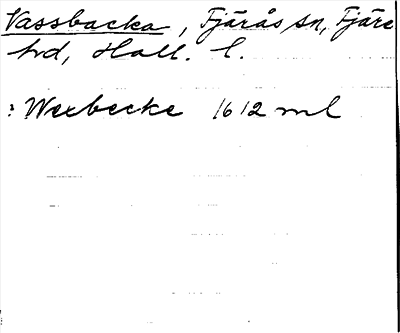 Vassbacka, Fjärås sn, Fjäre
hd, Hall. l.
: Wexbecke 1612 ml